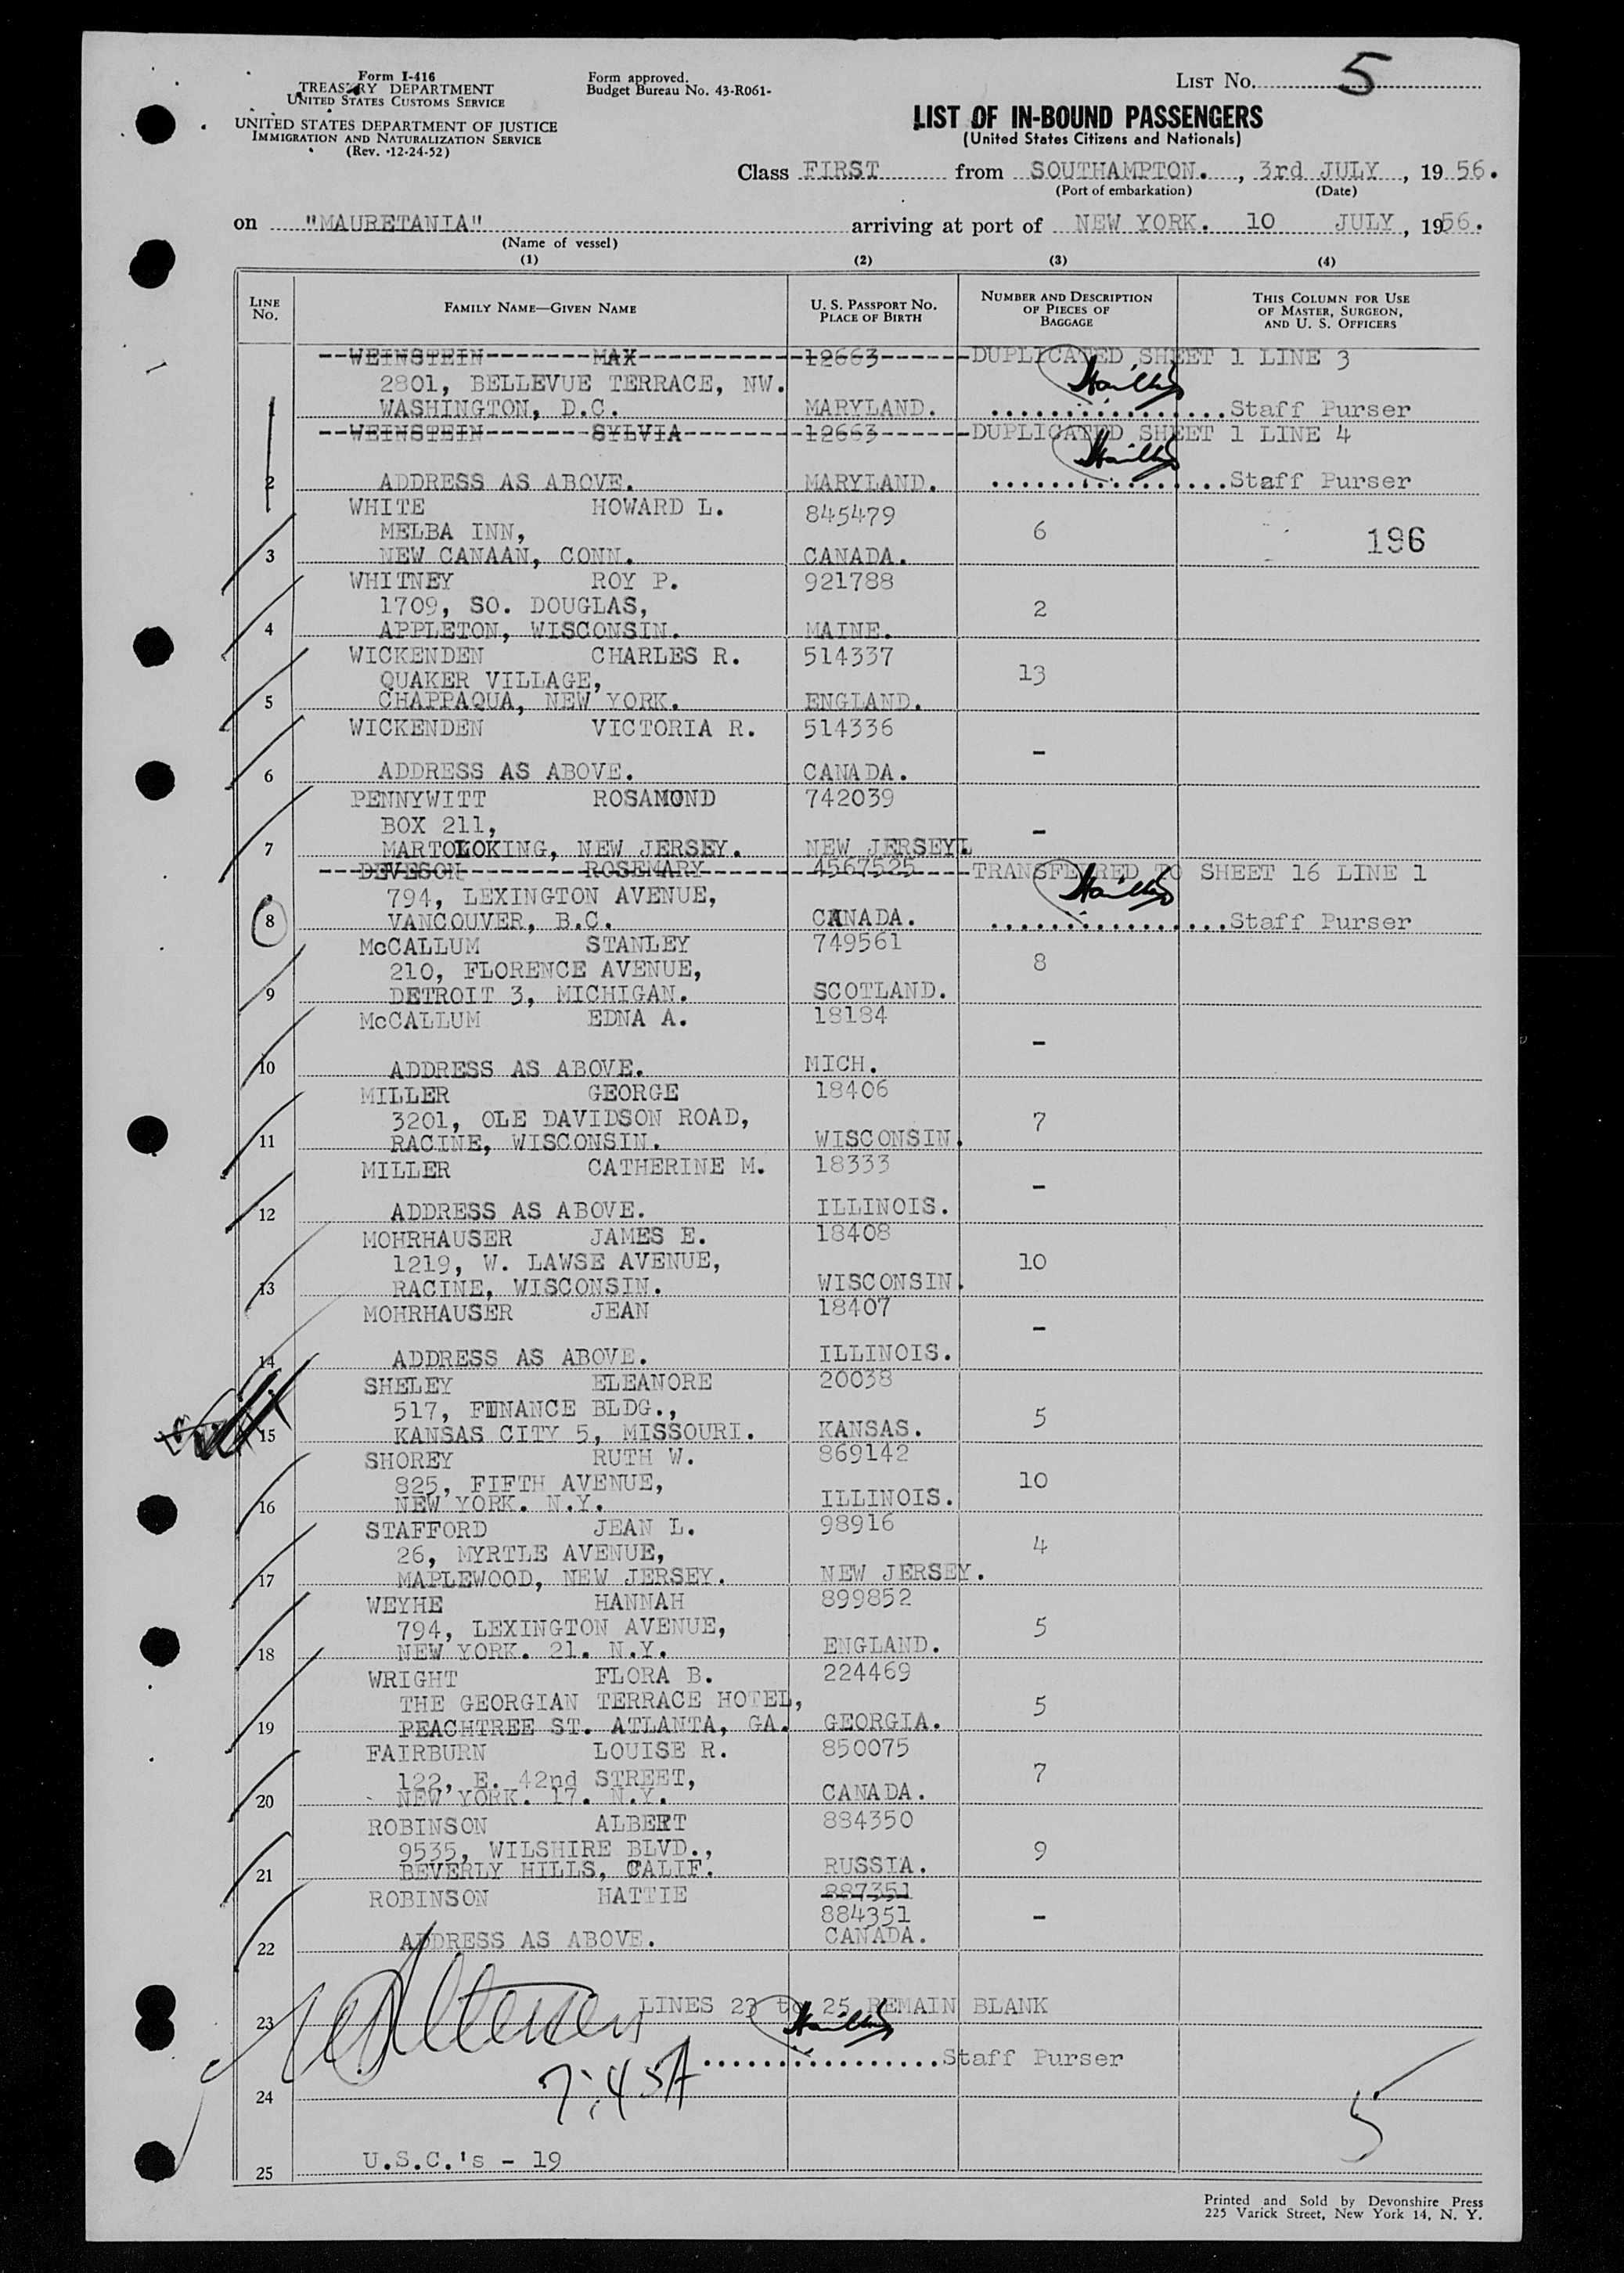 Form I-416
TREASURY DEPARTMENT
UNITED STATES CUSTOMS SERVICE
UNITED STATES DEPARTMENT OF JUSTICE
IMMIGRATION AND NATURALIZATION SERVICE
(Rev. 12-24-52)
Form approved.
Budget Bureau No. 43-R061-
LIST No. 5
LIST OF IN-BOUND PASSENGERS
(United States Citizens and Nationals)
Class FIRST from SOUTHAMPTON. , 3rd JULY , 19 56.
(Port of embarkation) (Date)
on "MAURETANIA" arriving at port of NEW YORK. 10 JULY , 1956.
(Name of vessel)
(1) (2) (3) (4)
LINE No. FAMILY NAME—GIVEN NAME U. S. PASSPORT No. PLACE OF BIRTH NUMBER AND DESCRIPTION OF PIECES OF BAGGAGE THIS COLUMN FOR USE OF MASTER, SURGEON, AND U. S. OFFICERS
--WEINSTEIN-------MAX-----------12663------DUPLICATED SHEET 1 LINE 3
2801, BELLEVUE TERRACE, NW.
1 WASHINGTON, D.C. MARYLAND. ................Staff Purser
--WEINSTEIN-------SYLVIA--------12663------DUPLICATED SHEET 1 LINE 4
2 ADDRESS AS ABOVE. MARYLAND. ................Staff Purser
WHITE HOWARD L. 845479
MELBA INN, 6 196
3 NEW CANAAN, CONN. CANADA.
WHITNEY ROY P. 921788
1709, SO. DOUGLAS, 2
4 APPLETON, WISCONSIN. MAINE.
WICKENDEN CHARLES R. 514337
QUAKER VILLAGE, 13
5 CHAPPAQUA, NEW YORK. ENGLAND.
WICKENDEN VICTORIA R. 514336
-
6 ADDRESS AS ABOVE. CANADA.
PENNYWITT ROSAMOND 742039
BOX 211, -
7 MARTOLOKING, NEW JERSEY. NEW JERSEY.
--DEVESON--------ROSEMARY-------4567525---TRANSFERRED TO SHEET 16 LINE 1
794, LEXINGTON AVENUE,
8 VANCOUVER, B.C. CANADA. ................Staff Purser
McCALLUM STANLEY 749561
210, FLORENCE AVENUE, 8
9 DETROIT 3, MICHIGAN. SCOTLAND.
McCALLUM EDNA A. 18184
-
10 ADDRESS AS ABOVE. MICH.
MILLER GEORGE 18406
3201, OLE DAVIDSON ROAD, 7
11 RACINE, WISCONSIN. WISCONSIN.
MILLER CATHERINE M. 18333
-
12 ADDRESS AS ABOVE. ILLINOIS.
MOHRHAUSER JAMES E. 18408
1219, W. LAWSE AVENUE, 10
13 RACINE, WISCONSIN. WISCONSIN.
MOHRHAUSER JEAN 18407
-
14 ADDRESS AS ABOVE. ILLINOIS.
SHELEY ELEANORE 20038
517, FINANCE BLDG., 5
15 KANSAS CITY 5, MISSOURI. KANSAS.
SHOREY RUTH W. 869142
825, FIFTH AVENUE, 10
16 NEW YORK. N.Y. ILLINOIS.
STAFFORD JEAN L. 98916
26, MYRTLE AVENUE, 4
17 MAPLEWOOD, NEW JERSEY. NEW JERSEY.
WEYHE HANNAH 899852
794, LEXINGTON AVENUE, 5
18 NEW YORK. 21. N.Y. ENGLAND.
WRIGHT FLORA B. 224469
THE GEORGIAN TERRACE HOTEL, 5
19 PEACHTREE ST. ATLANTA, GA. GEORGIA.
FAIRBURN LOUISE R. 850075
122, E. 42nd STREET, 7
20 NEW YORK. 17. N.Y. CANADA.
ROBINSON ALBERT 884350
9535, WILSHIRE BLVD., 9
21 BEVERLY HILLS, CALIF. RUSSIA.
ROBINSON HATTIE 887351
884351 -
22 ADDRESS AS ABOVE. CANADA.
LINES 23 to 25 REMAIN BLANK
23
................Staff Purser
7:45A
24 5
U.S.C.'s - 19
25
Printed and Sold by Devonshire Press
225 Varick Street, New York 14, N. Y.